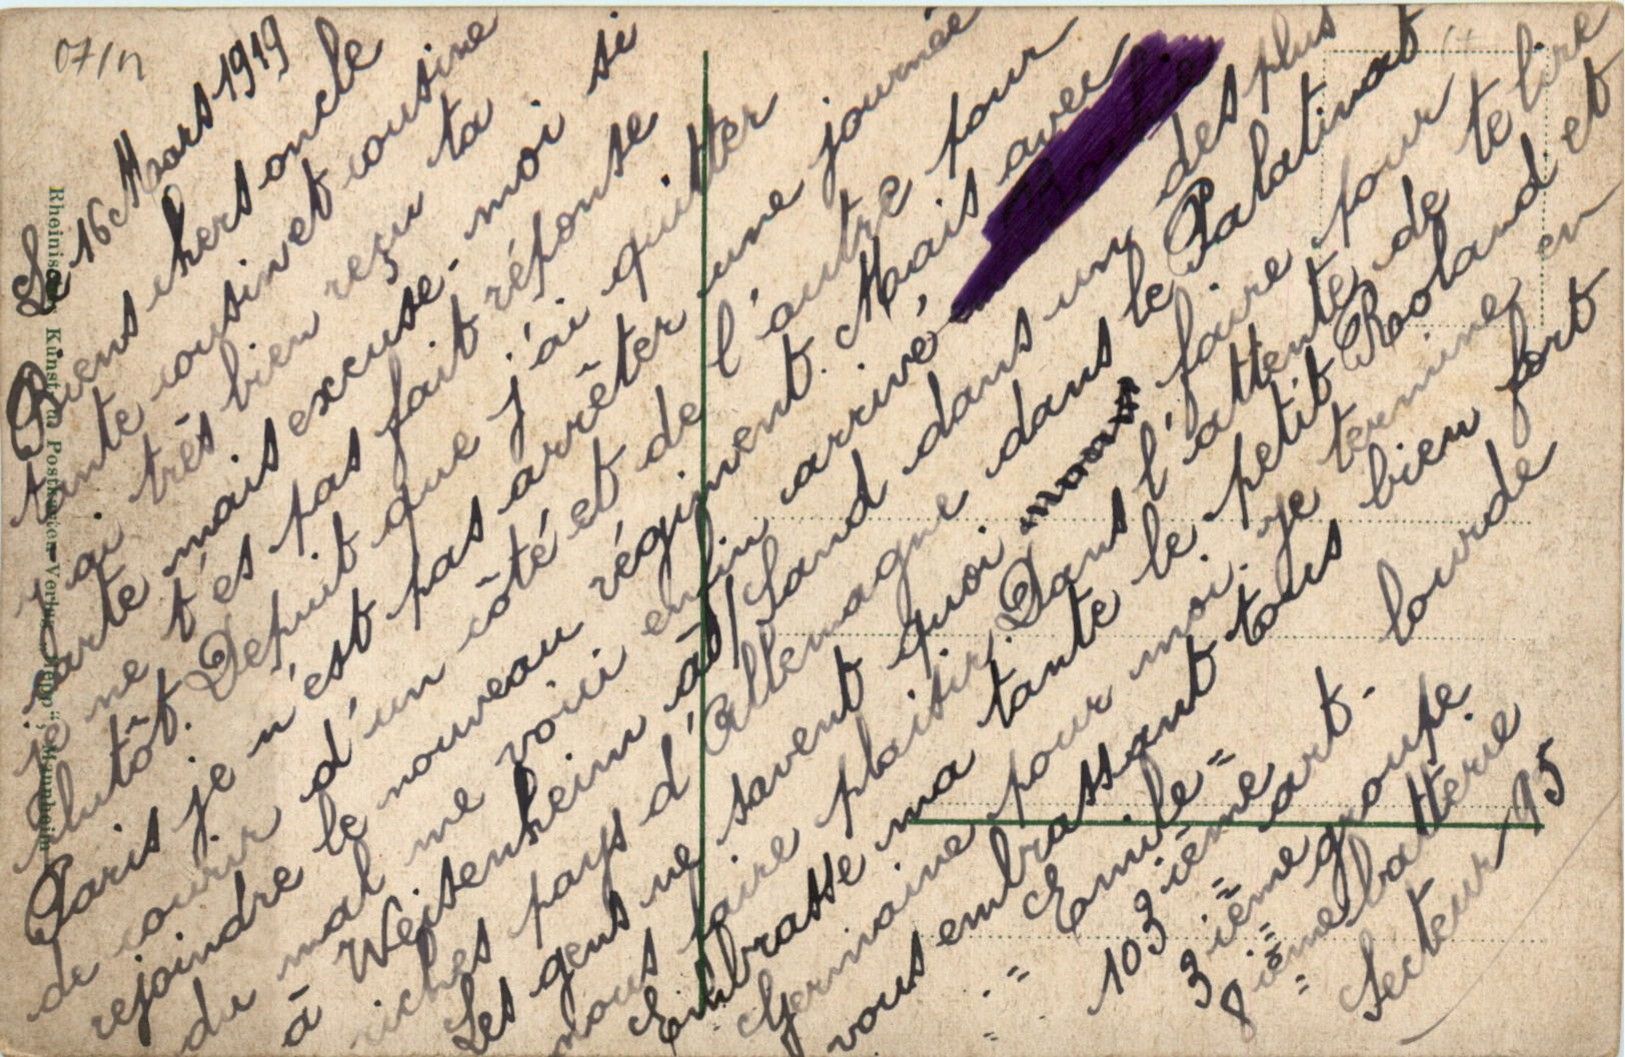 07/11
Le 16 Mars 1919
Biens chers oncle
tante cousin et cousine
j'ai très bien reçu ta
carte mais excuse-moi si
je ne t'es pas fait réponse
plutôt. Depuit que j'ai quitter
Paris je n'est pas arrêter une journée
de courir d'un côté et de l'autre pour
rejoindre le nouveau régiment. Mais avec
du mal me voici enfin arrivé,
à Weisenheim a/Sand dans un des plus
riches pays d'Allemagne dans le Palatinat
Les gens ne savent quoi faire pour
nous faire plaisir. Dans l'attente de te lire
Embrasse ma tante le petit Roland et
Germaine pour moi. je termine en
vous embrassant tous bien fort
Emile
103 ième art. lourde
3 ième groupe
8 ième batterie
Secteur 15
Rheinische Kunst- und Postkarten-Verlag Mannheim